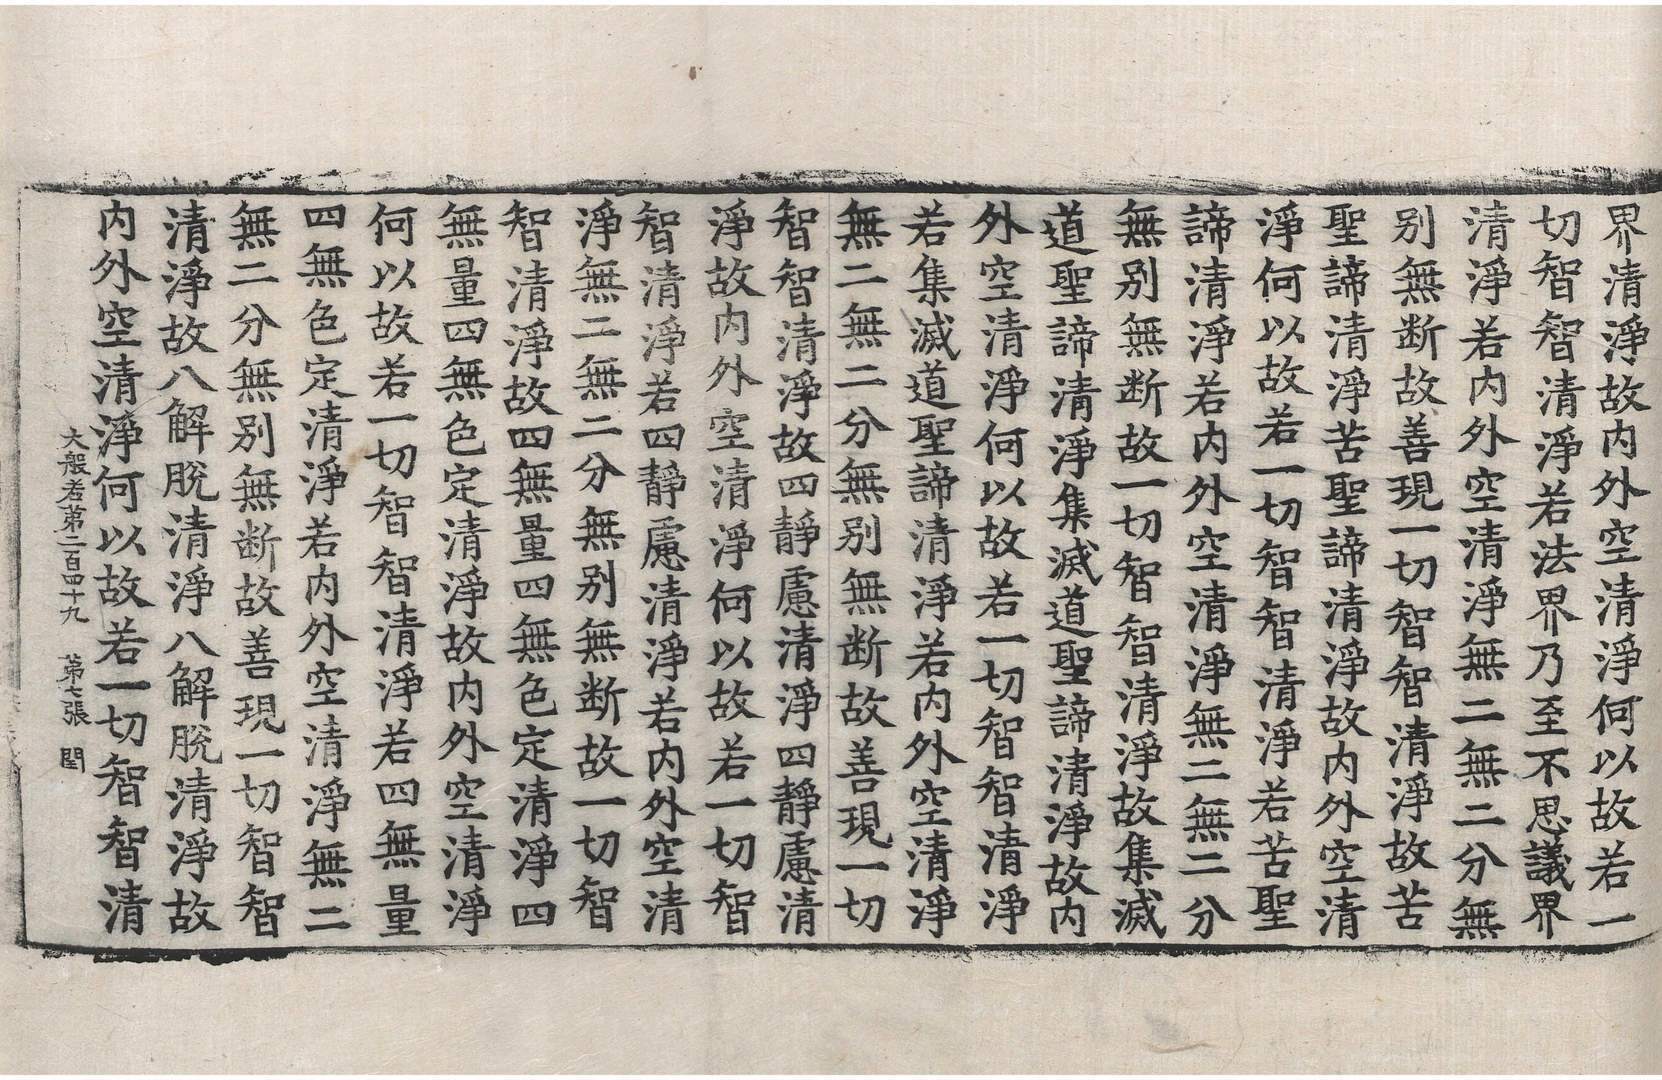 界清淨故内外空清淨何以故若一
切智智清淨若法界乃至不思議界
清淨若内外空清淨無二無二分無
别無断故善現一切智智清淨故苦
聖諦清淨苦聖諦清淨故内外空清
淨何以故若一切智智清淨若苦聖
諦清淨若内外空清淨無二無二分
無别無断故一切智智清淨故集滅
道聖諦清淨集滅道聖諦清淨故内
外空清淨何以故若一切智智清淨
若集滅道聖諦清淨若内外空清淨
無二無二分無别無断故善現一切
智智清淨故四靜慮清淨四靜慮清
淨故内外空清淨何以故若一切智
智清淨若四靜慮清淨若内外空清
淨無二無二分無别無断故一切智
智清淨故四無量四無色定清淨四
無量四無色定清淨故内外空清淨
何以故若一切智智清淨若四無量
四無色定清淨若内外空清淨無二
無二分無别無断故善現一切智智
清淨故八解脫清淨八解脫清淨故
内外空清淨何以故若一切智智清
大般若第二百四十九 第七張 閏